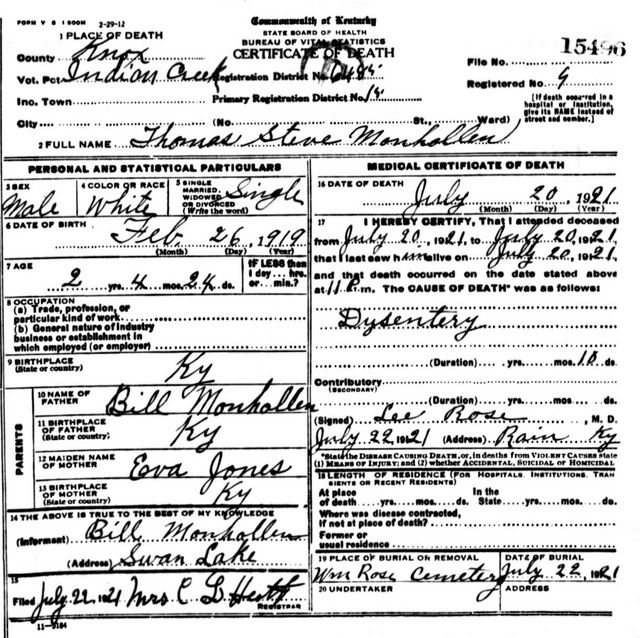 FORM V S 1 500M 2-29-12
Commonwealth of Kentucky
STATE BOARD OF HEALTH
BUREAU OF VITAL STATISTICS
CERTIFICATE OF DEATH
1 PLACE OF DEATH
County Knox
Vot. Pct. Indian Creek
Registration District No.
Inc. Town
Primary Registration District No.
City (No. St., Ward)
File No. 15496
Registered No. 9
[If death occurred in a hospital or institution, give its NAME instead of street and number.]
2 FULL NAME Thomas Steve Monhollen
PERSONAL AND STATISTICAL PARTICULARS
3 SEX Male
4 COLOR OR RACE White
5 SINGLE MARRIED, WIDOWED OR DIVORCED (Write the word) Single
6 DATE OF BIRTH Feb. 26, 1919
(Month) (Day) (Year)
7 AGE 2 yrs. 4 mos. 24 ds.
IF LESS than 1 day... hrs. or... min.?
8 OCCUPATION
(a) Trade, profession, or particular kind of work
(b) General nature of industry business or establishment in which employed (or employer)
9 BIRTHPLACE (State or country) Ky
PARENTS
10 NAME OF FATHER Bill Monhollen
11 BIRTHPLACE OF FATHER (State or country) Ky
12 MAIDEN NAME OF MOTHER Eva Jones
13 BIRTHPLACE OF MOTHER (State or country) Ky
14 THE ABOVE IS TRUE TO THE BEST OF MY KNOWLEDGE
(Informant) Bill Monhollen
(Address) Swan Lake
15
Filed July 22, 1921 Mrs C G
REGISTRAR
11-3184
MEDICAL CERTIFICATE OF DEATH
16 DATE OF DEATH July 20, 1921
(Month) (Day) (Year)
17 I HEREBY CERTIFY, That I attended deceased
from July 20, 1921, to July 20, 1921,
that I last saw him alive on July 20, 1921,
and that death occurred on the date stated above
at 11 P. m. The CAUSE OF DEATH* was as follows:
Dysentery
(Duration) yrs. mos. 10 ds.
Contributory
(SECONDARY)
(Duration) yrs. mos. ds.
(Signed) Lee Rose, M. D.
July 22, 1921 (Address) Rain Ky
*State the DISEASE CAUSING DEATH, or, in deaths from VIOLENT CAUSES state
(1) MEANS OF INJURY; and (2) whether ACCIDENTAL, SUICIDAL OR HOMICIDAL
18 LENGTH OF RESIDENCE (FOR HOSPITALS, INSTITUTIONS, TRANSIENTS OR RECENT RESIDENTS)
At place of death yrs. mos. ds. In the State yrs. mos. ds.
Where was disease contracted,
if not at place of death?
Former or
usual residence
19 PLACE OF BURIAL OR REMOVAL Wm Rose Cemetery
DATE OF BURIAL July 22, 1921
20 UNDERTAKER
ADDRESS